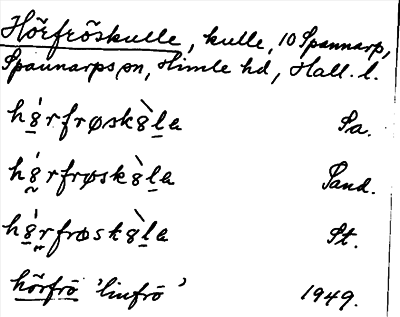 Hörfröskulle, kulle, 10 Spannarp,
Spannarps sn, Himle hd, Hall. l.
hörfrøskola Sa.
hörfrøskola Sand.
hörfrøskola St.
hörfrö 'linfrö' 1949.